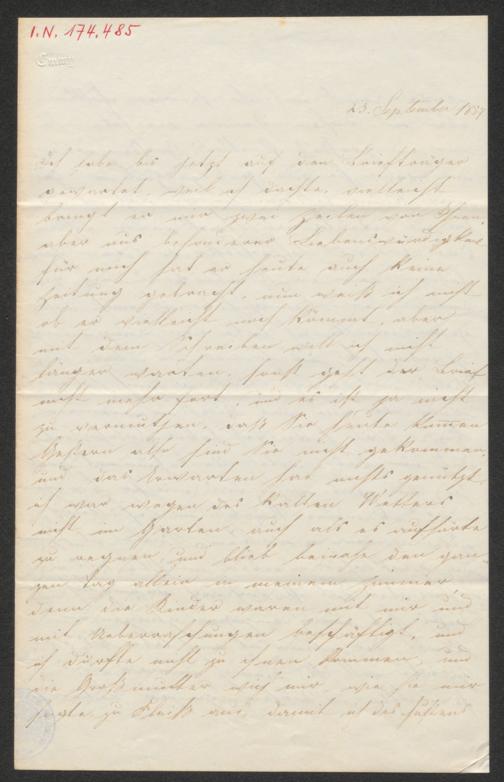 I.N. 174.485
Emmy
23. September 1857
ich habe bis jetzt auf den Briefträger
gewartet, weil ich dachte, vielleicht
bringt er mir zwei Zeilen von Ihnen,
aber aus besonderer Liebenswürdigkeit
für mich hat er heute auch keine
Zeitung gebracht, nun weiß ich nicht
ob er vielleicht noch kömmt, aber
mit dem Schreiben will ich nicht
länger warten, sonst geht der Brief
nicht mehr fort, und es ist ja nicht
zu vermuthen, daß Sie heute kamen
Gestern also sind Sie nicht gekommen,
und das Erwarten hat nichts genützt,
ich war wegen des kalten Wetters
nicht im Garten, auch als es aufhörte
zu regnen, und blieb beinahe den gan-
zen Tag allein in meinem Zimmer,
denn die Kinder waren mit mir und
mit Ueberraschungen beschäftigt, und
ich durfte nicht zu ihnen kommen, und
die Großmutter wich mir, wie sie mir
sagte, zu Fleiß aus, damit ich des